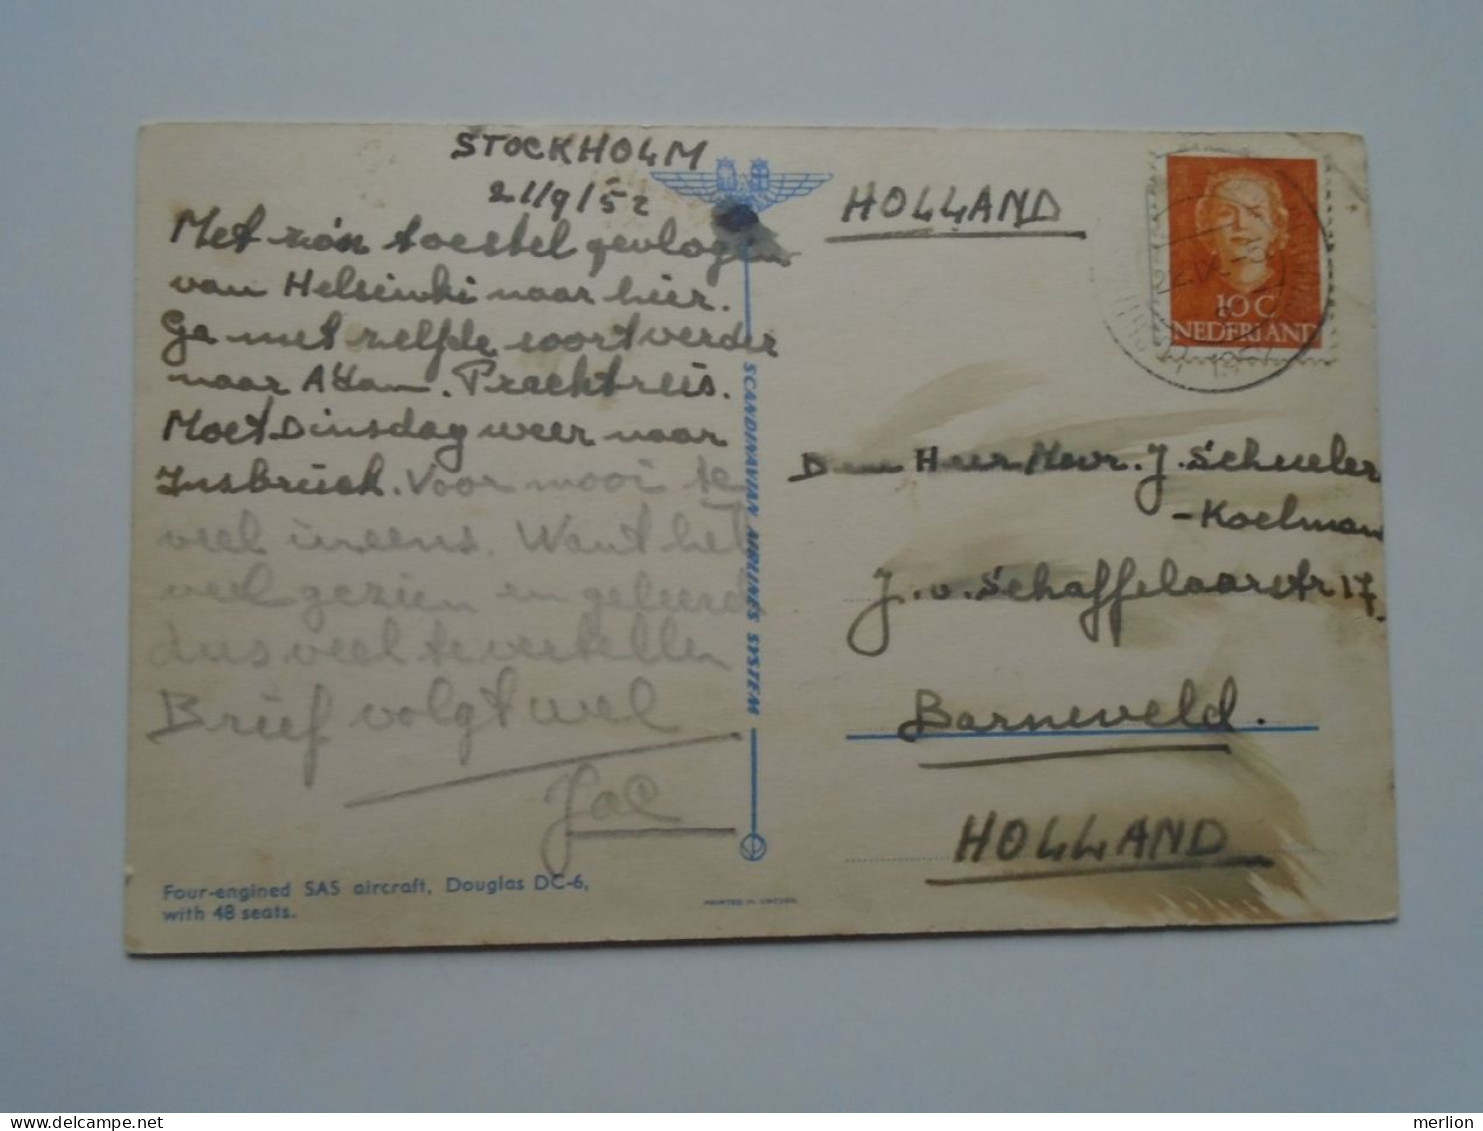 STOCKHOLM
21/9/52
Met zo'n toestel gevlogen
van Helsinki naar hier.
Ga met zelfde soort verder
naar A'dam. Prachtreis.
Moet Dinsdag weer naar
Insbrück. Voor mooi te
veel ineens. Want heb
veel gezien en geleerd
dus veel te vertellen
Brief volgt wel
Jac
Four-engined SAS aircraft, Douglas DC-6,
with 48 seats.
SCANDINAVIAN AIRLINES SYSTEM
PRINTED IN SWEDEN
HOLLAND
10 C
NEDERLAND
Den Heer Mevr. J. Scheeler
-Koelman
J. v. Schaffelaarstr 17.
Barneveld.
HOLLAND
merlion